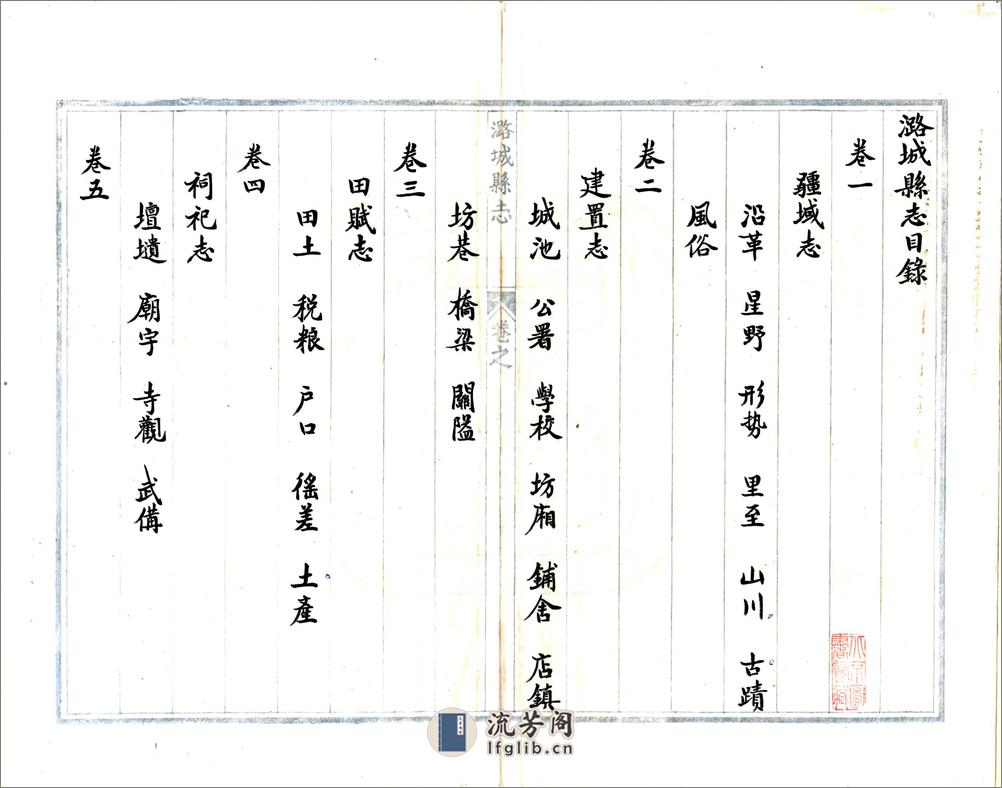 潞城縣志目錄
卷一
疆域志
沿革 星野 形勢 里至 山川 古蹟
風俗
卷二
建置志
城池 公署 學校 坊廂 鋪舍 店鎮
潞城縣志 卷之
坊巷 橋梁 關隘
卷三
田賦志
田土 稅粮 户口 徭差 土產
卷四
祠祀志
壇壝 廟宇 寺觀 武備
卷五
流芳阁
lfglib.cn